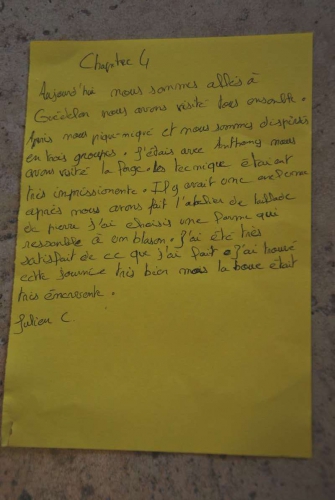 Chapitre 4
Aujourd'hui nous sommes allés à
Guédelon nous avons visité tous ensemble.
Après nous pique-niqué et nous sommes dispersés
en trois groupes. J'étais avec Anthony nous
avons visité la forge. les tecnique étaient
très impressionente. Il y avait une
après nous avons fait l'atelier de taillade
de pierre j'ai choisis une forme qui
ressemble à un blason. J'ai été très
satisfait de ce que j'ai fait. J'ai trouvé
cette journée très bien mais la boue était
très énervente.
Julien C.